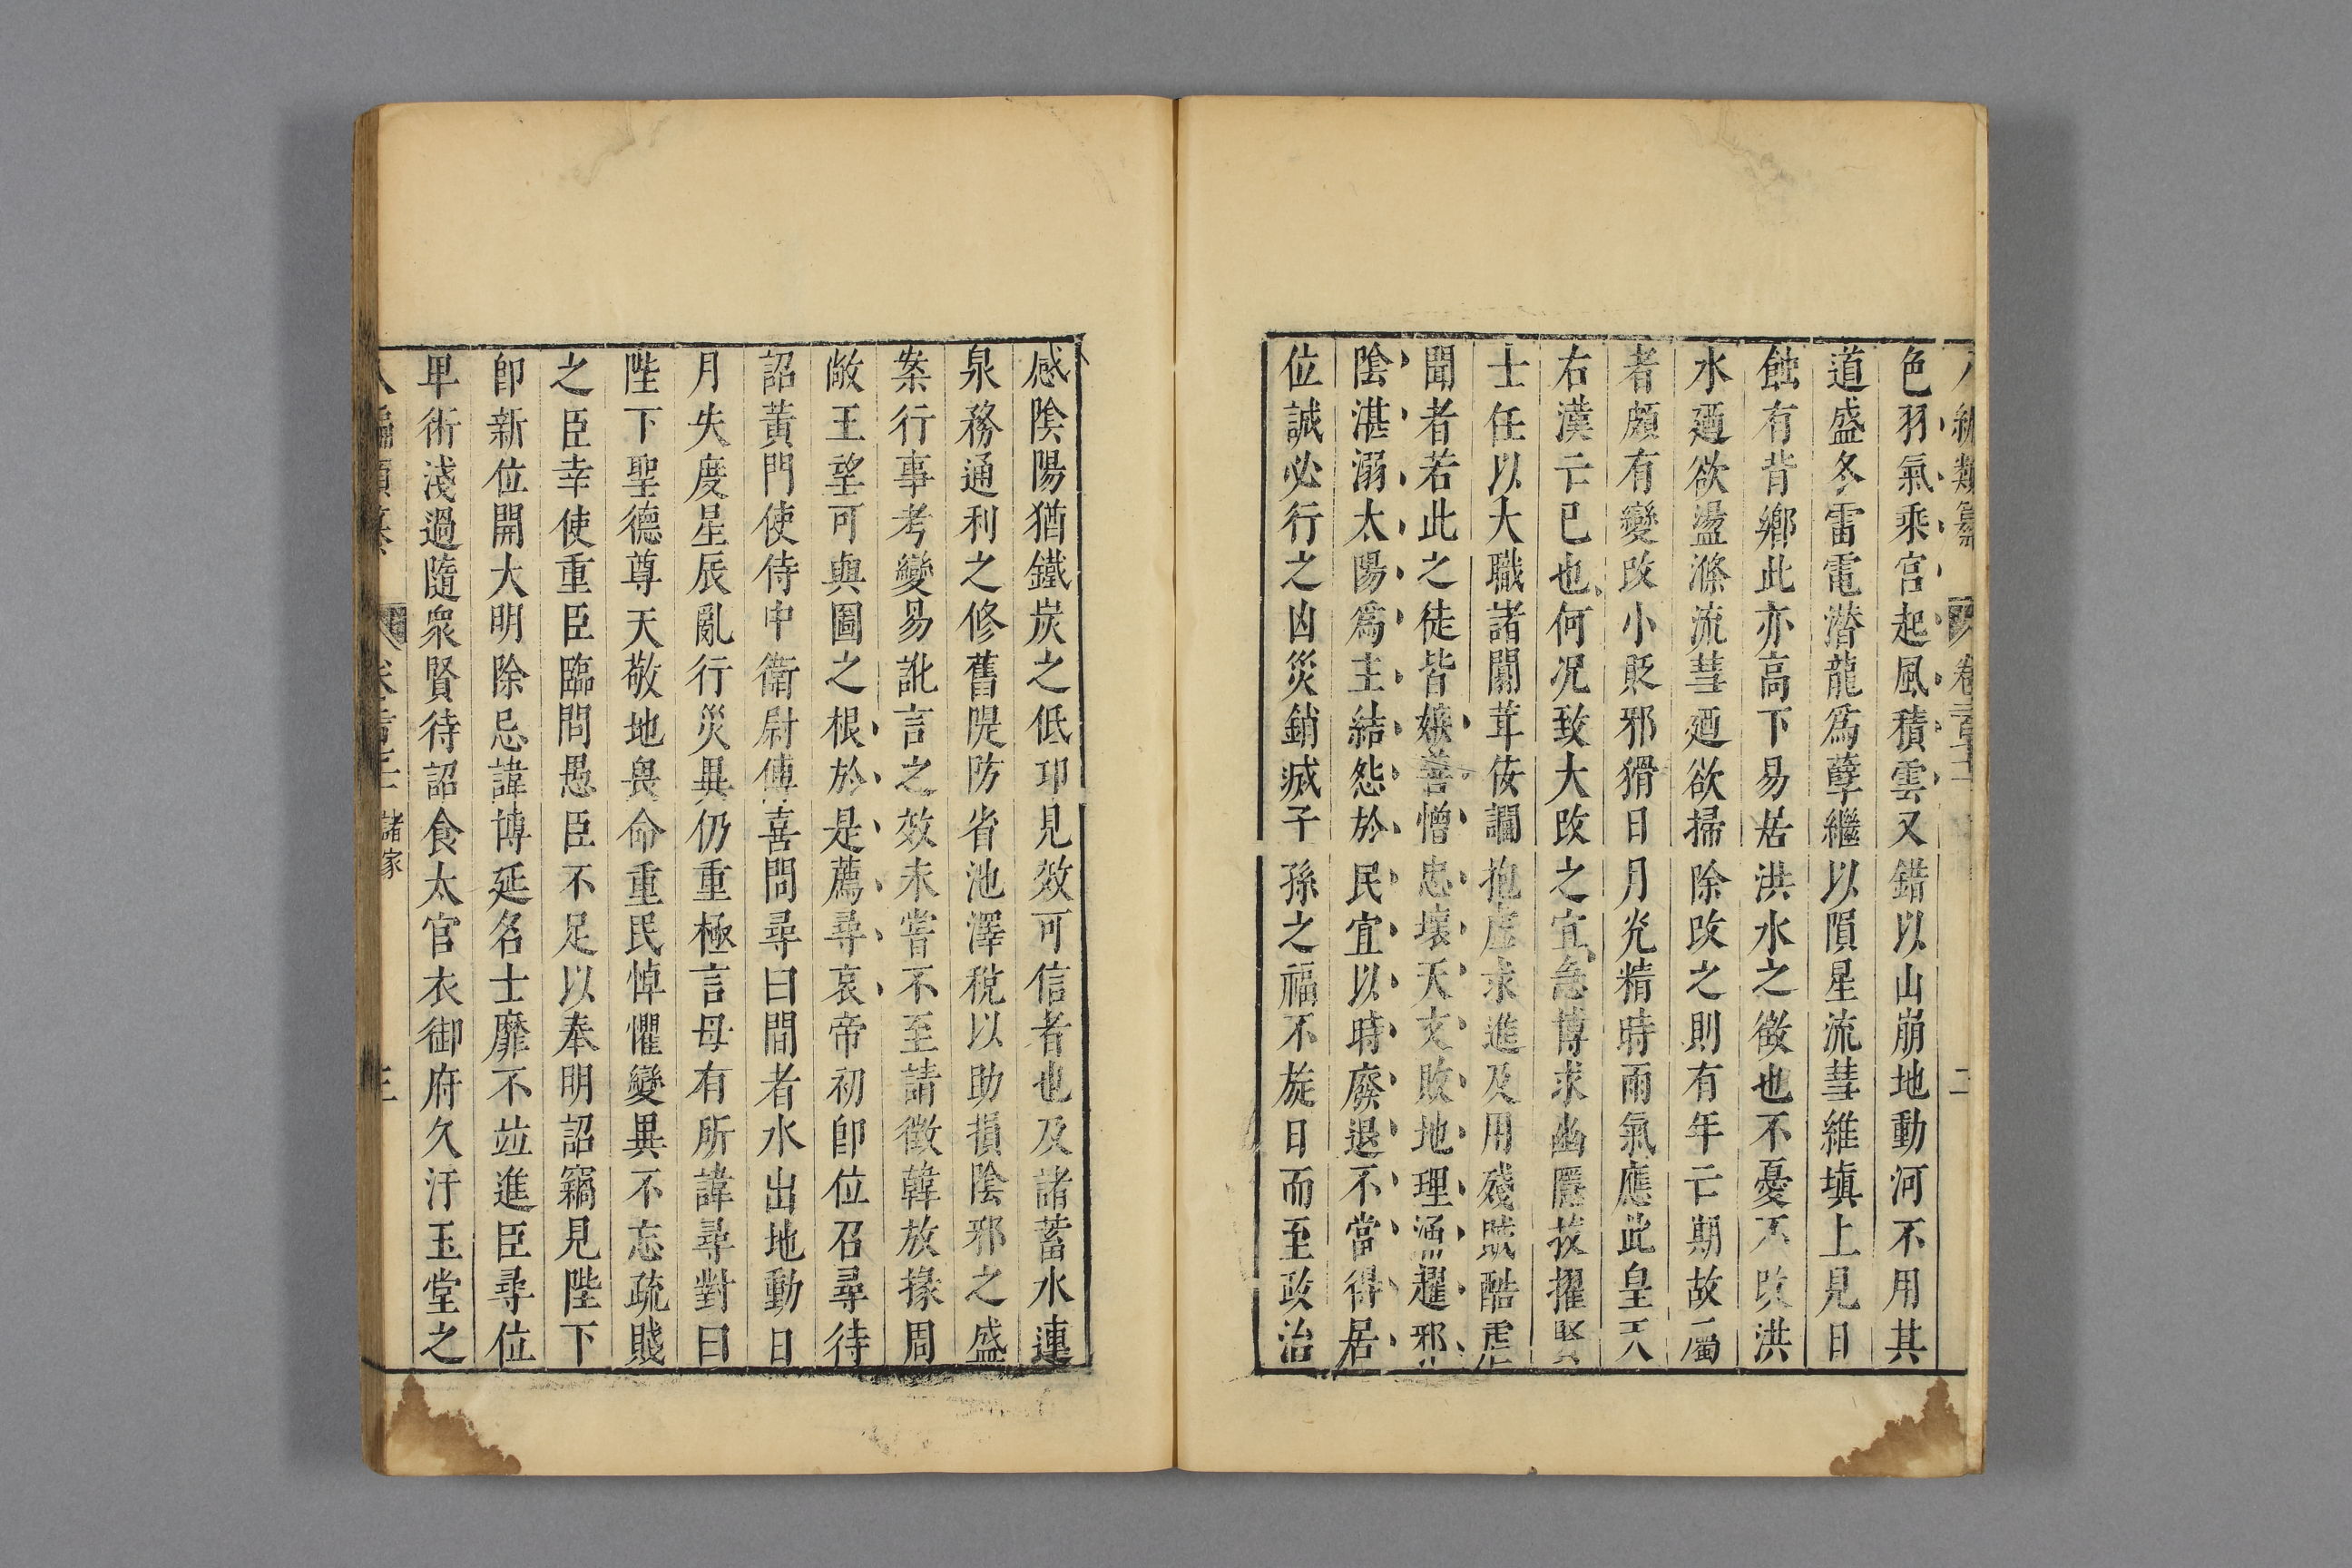 色羽氣乘宮起風積雲又錯以山崩地動河不用其
道盛冬雷電潛龍爲孽繼以隕星流彗維塡上見日
蝕有背鄉此亦高下易居洪水之徵也不憂不改洪
水迺欲盪滌流彗迺欲掃除改之則有年亡期故屬
者頗有變改小貶邪猾日月光精時雨氣應此皇天
右漢亡已也何况致大改之宜急博求幽隱拔擢賢
士任以大職諸闒茸佞讇抱虛求進及用殘賊酷虐
聞者若此之徒皆嫉善憎忠壞天文敗地理涌趯邪
陰湛溺太陽爲主結怨於民宜以時廢退不當得居
位誠必行之凶災銷滅子孫之福不旋日而至政治
感陰陽猶鐵炭之低卬見效可信者也及諸蓄水連
泉務通利之修舊隄防省池澤稅以助損陰邪之盛
案行事考變易訛言之效未嘗不至請徵韓放掾周
敞王望可與圖之根於是薦尋哀帝初卽位召尋待
詔黃門使侍中衞尉傅喜問尋曰間者水出地動日
月失度星辰亂行災異仍重極言毋有所諱尋對曰
陛下聖德尊天敬地畏命重民悼懼變異不忘疏賤
之臣幸使重臣臨問愚臣不足以奉明詔竊見陛下
卽新位開大明除忌諱博延名士靡不竝進臣尋位
卑術淺過隨衆賢待詔食太官衣御府久汙玉堂之
諸家